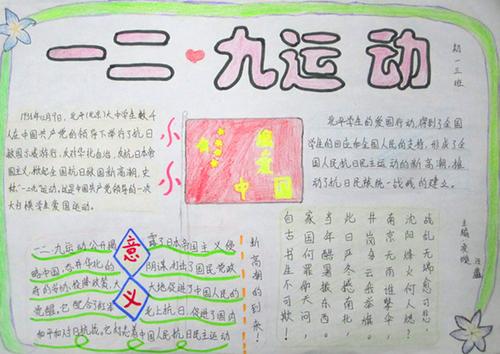 一二·九运动
初一三班
1935年12月9日,北平(北京)大中学生数千
人在中国共产党的领导下举行了抗日
救国示威游行,反对华北自治,反抗日本帝
国主义,掀起全国抗日救国新高潮,史
称"一二九运动。这是中国共产党领导的一次
大规模学生爱国运动。
小
小
爱
中
国
北平学生的爱国行动,得到了全国
学生的响应和全国人民的支持,形成了全
国人民抗日民主运动的新高潮,推
动了抗日民族统一战线的建立。
意
义
一二·九运动公开揭露了日本帝国主义侵
略中国,吞并华北的阴谋,打击了国民党政
府的妥协投降政策,大大地促进了中国人民的
觉醒。它配合了红军北上抗日,促进了国内
和平和对日抗战。它标志着中国人民抗日民主运动
新高潮的到来!
战乱无端
沈阳烽火何人
南京
井岗
此日严冬撼南北,
当年酷暑振东西。
家国何罪
自古书生不可欺。
主编: